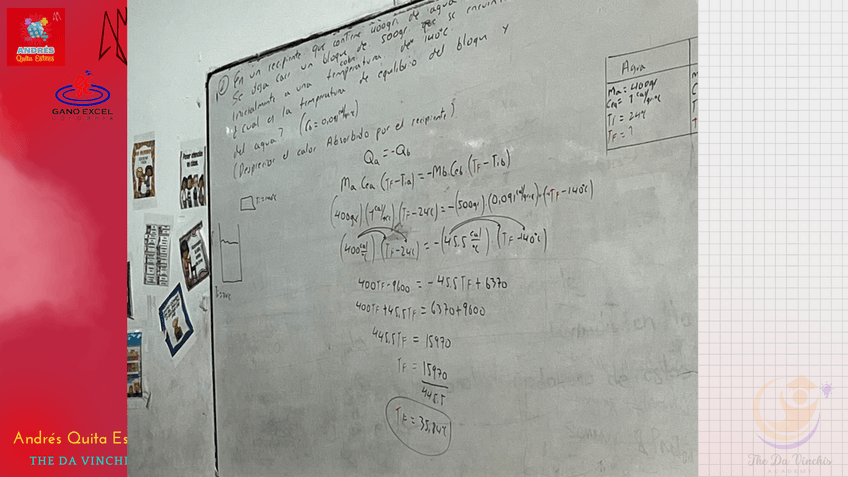 ANDRÉS
Quita Estrés
GANO EXCEL
En un recipiente que contiene 400gr de agua
Se deja caer un bloque de 500gr que se encuentra
cobre
inicialmente a una temperatura de 140°C
¿cual es la temperatura de equilibrio del bloque y
del agua?
(Despreciar el calor Absorbido por el recipiente)
Agua
Ma = 400gr
Ti = 24°C
TF = ?
Qa = -Qb
Ma Cea (TF - Tia) = -Mb Ceb (TF - Tib)
(400gr) (1cal/gr°C) (TF - 24°C) = -(500gr) (0,091cal/gr°C) (TF - 140°C)
(400 cal/°C) (TF - 24°C) = -(45.5 cal/°C) (TF - 140°C)
400TF - 9600 = -45.5TF + 6370
400TF + 45.5TF = 6370 + 9600
445.5TF = 15970
TF = 15970
445.5
TF = 35.84°C
Andrés Quita Es
THE DA VINCHI
The Da Vinchis
ACADEMY